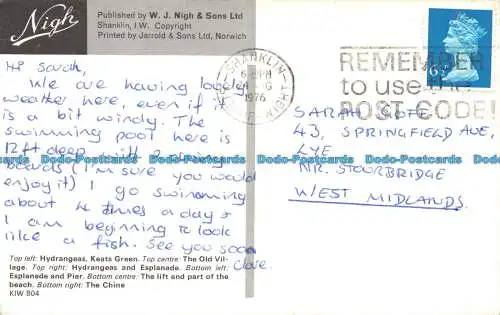 Nigh
Published by W. J. Nigh & Sons Ltd
Shanklin, I.W. Copyright
Printed by Jarrold & Sons Ltd, Norwich
SHANKLIN
1976
REMEMBER
to use the
POST CODE!
6½P
Hi Sarah,
We are having lovely
weather here, even if it
is a bit windy. The
swimming pool here is
12ft deep with 2 diving
boards (I'm sure you would
enjoy it) I go swimming
about 4 times a day &
I am beginning to look
like a fish. See you soon
Clare.
SARAH COTE
43, SPRINGFIELD AVE,
LYE
NR. STOURBRIDGE
WEST MIDLANDS.
Top left: Hydrangeas, Keats Green. Top centre: The Old Vil-
lage. Top right: Hydrangeas and Esplanade. Bottom left:
Esplanade and Pier. Bottom centre: The lift and part of the
beach. Bottom right: The Chine
KIW 804
Dodo-Postcards Dodo-Postcards Dodo-Postcards Dodo-Postcards Dodo-Postcards